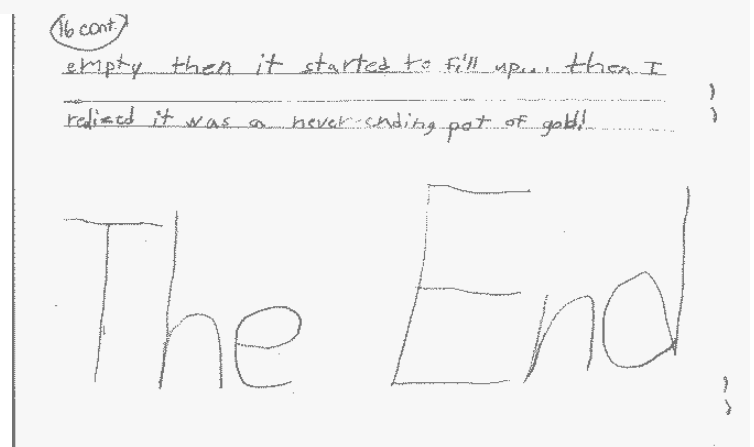 (16 cont.)
empty then it started to fill up... then I
relized it was a never-ending pot of gold!
The End